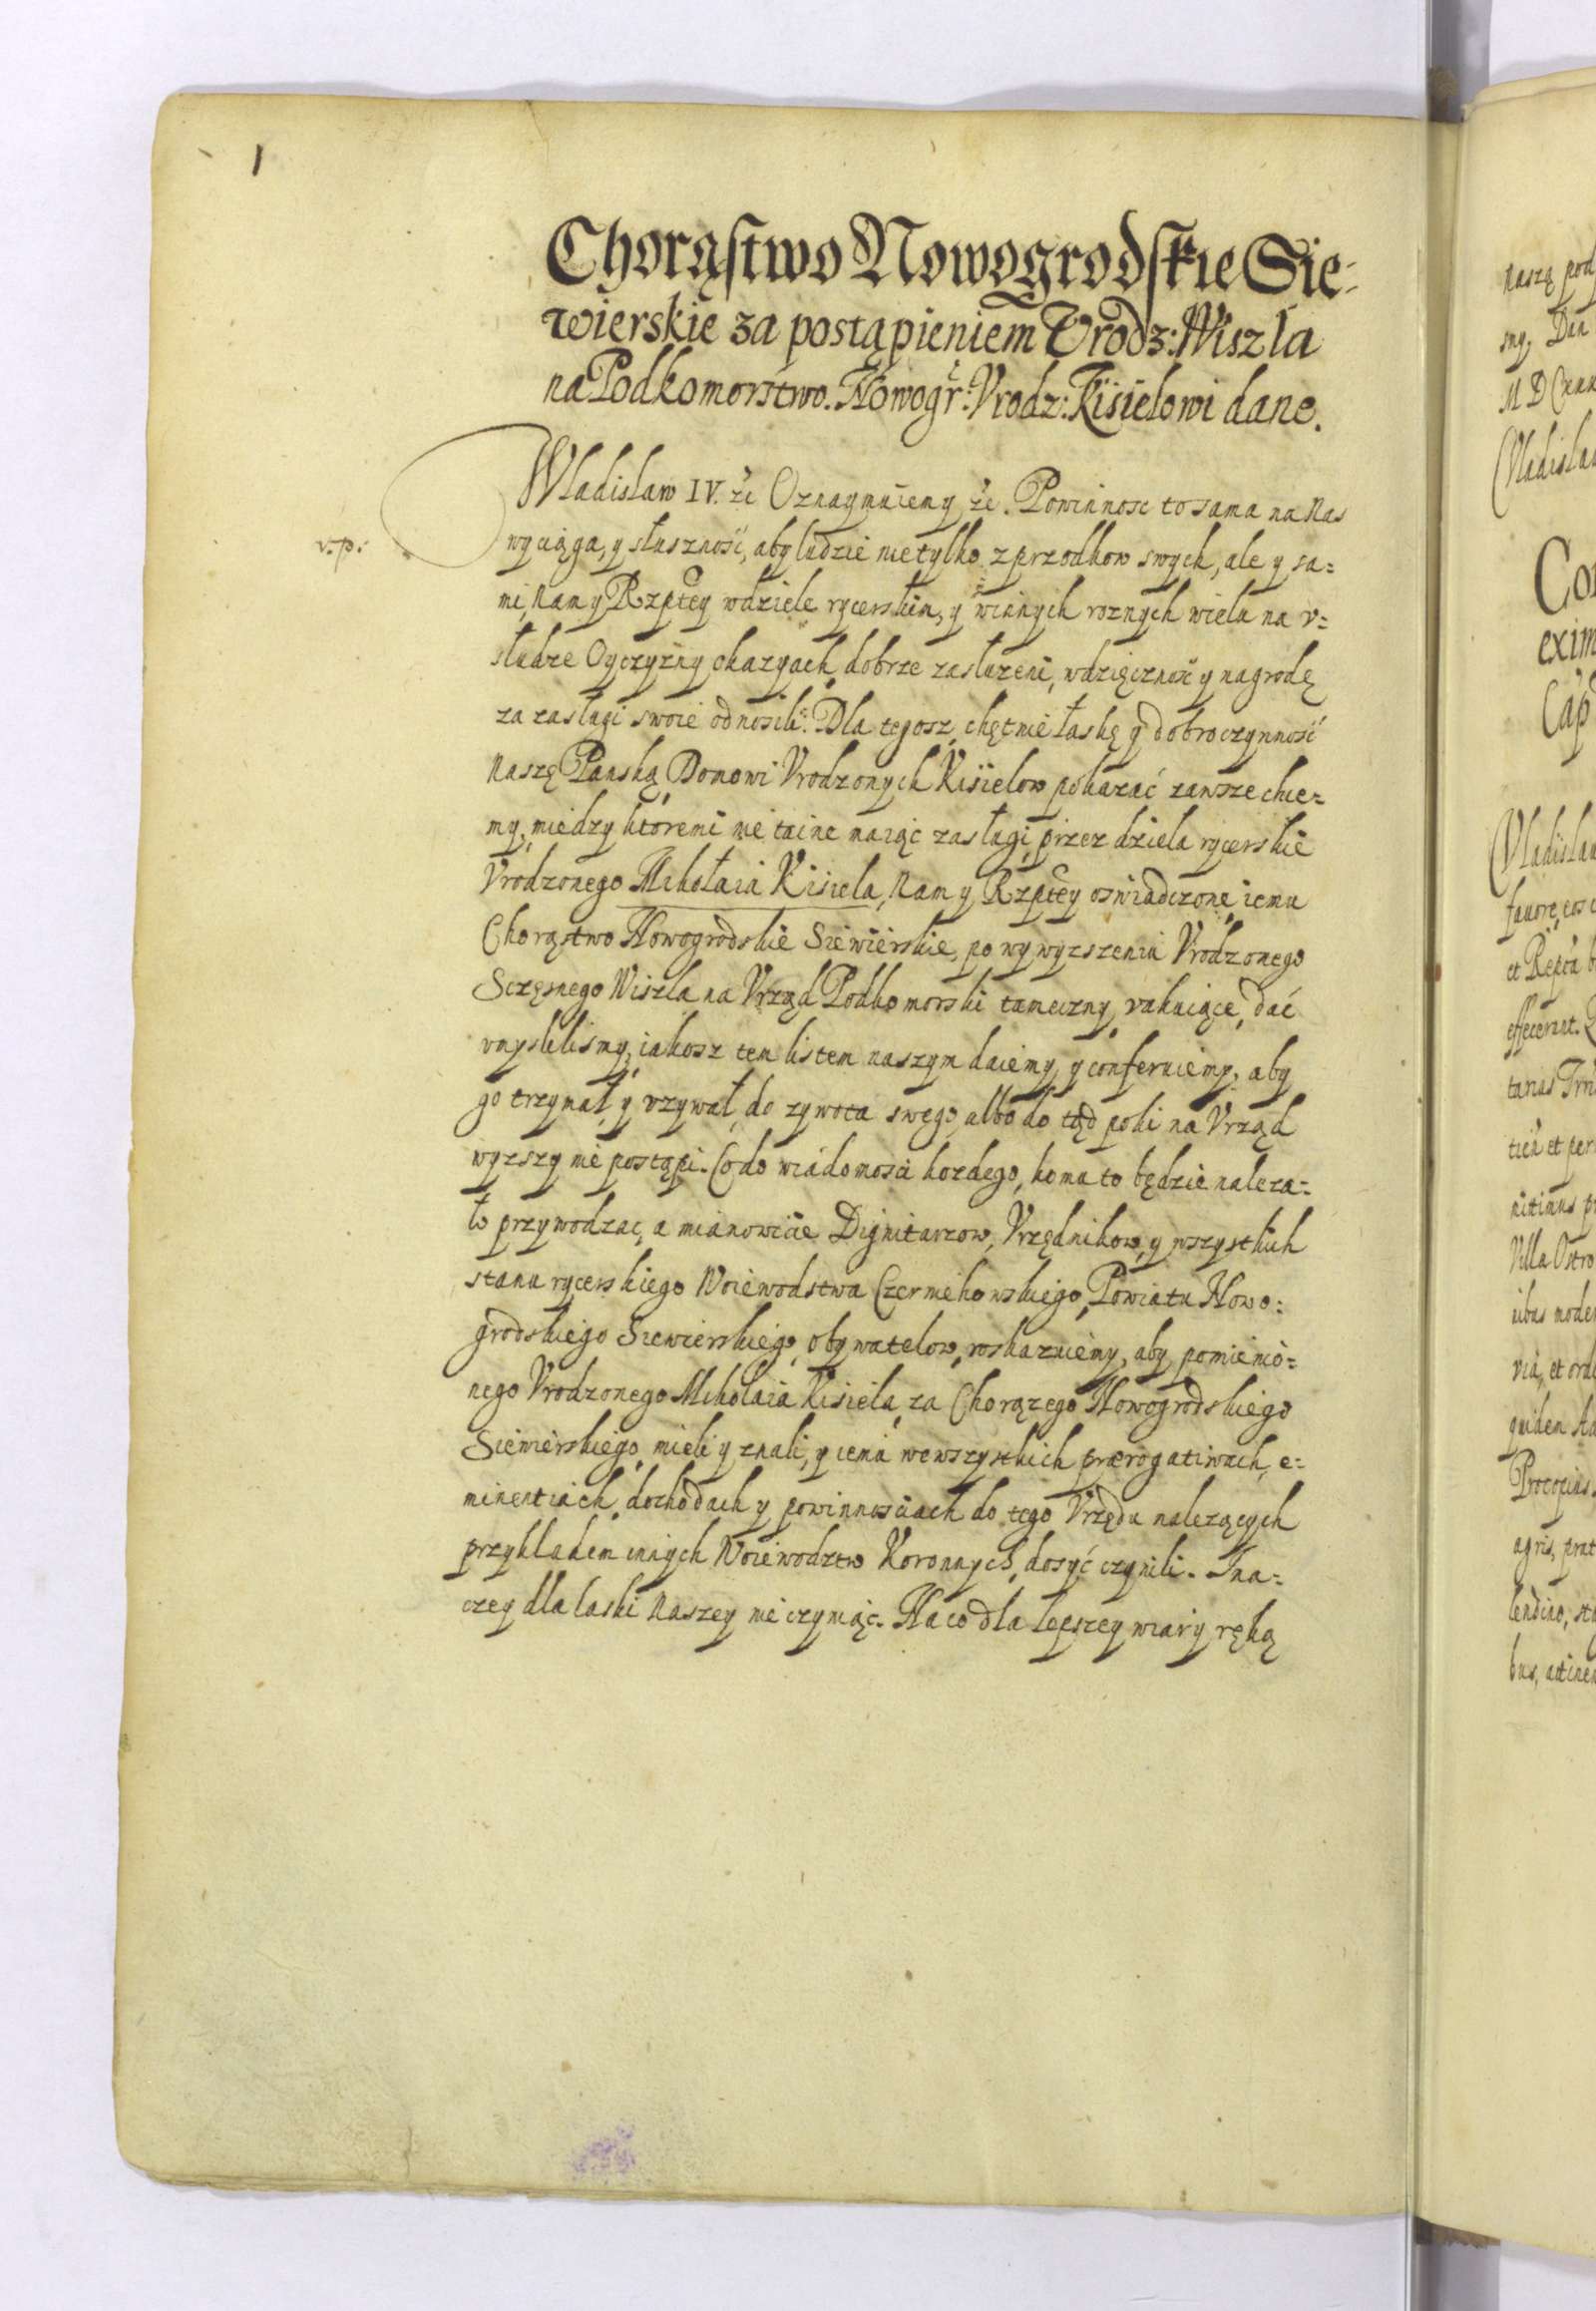 1
Chorąstwo Nowogrodskie Sie-
wierskie za postąpieniem Vrodz: Wiszla
na Podkomorstwo. Nowogr: Vrodz: Kisielowi dane.
Wladislaw IV. &c Oznaymuiemy &c. Powinnosc to sama na Nas
v. p:
wyciąga, y słusznosć, aby ludzie nie tylko z przodkow swych, ale y sa=
mi, Nam y Rzptey w dziele rycerskim, y w innych roznych wielu na v=
słudze Oyczyzny okazyach, dobrze zasłuzeni, wdzięcznosć y nagrodę
za zasługi swoie odnosili. Dla tegosz chętnie łaskę y dobroczynnosć
Naszę Panską Domowi Vrodzonych Kisielow pokazać zawsze chce=
my, miedzy ktoremi nie taine maiąc zasługi, przez dziela rycerskie
Vrodzonego Mikołaia Kisiela, Nam y Rzptey oswiadczone, iemu
Chorąstwo Nowogrodskie Siewierskie, po wywyzszeniu Vrodzonego
Sczęsnego Wiszla na Vrząd Podkomorski tameczny, vakuiące, dać
vmyslilismy, iakosz tem listem naszym daiemy, y conferuiemy, aby
go trzymał y vzywał, do zywota swego, albo do tąd poki na Vrząd
wyzszy nie postąpi. Co do wiadomosci kozdego, komu to będzie naleza=
ło przywodząc, a mianowicie Dignitarzow, Vrzędnikow, y wszystkich
stanu rycerskiego Woiewodstwa Czerniehowskiego, Powiatu Nowo=
grodskiego Siewierskiego, obywatelow, roskazuiemy, aby pomienio=
nego Vrodzonego Mikolaia Kisiela, za Chorązego Nowogrodskiego
Siewierskiego, mieli y znali, y iemu we wszystkich prærogatiwach, e=
minentiach, dochodach y powinnosciach do tego Vrzędu nalezących
przykladem innych Woiewodztw Koronnych, dosyć czynili. Ina=
czey dla laski Naszey nie czyniąc. Na co dla lepszey wiary ręką